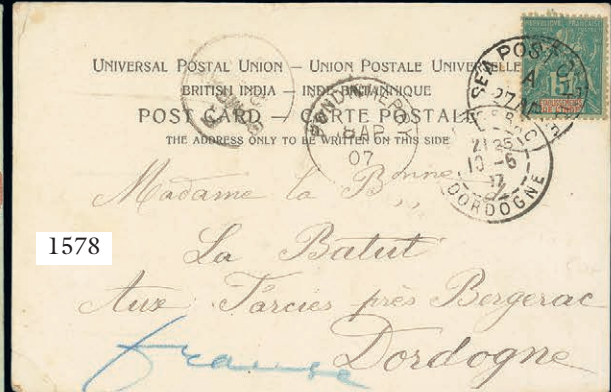 UNIVERSAL POSTAL UNION – UNION POSTALE UNIVERSELLE
BRITISH INDIA – INDE BRITANNIQUE
POST CARD – CARTE POSTALE
THE ADDRESS ONLY TO BE WRITTEN ON THIS SIDE
SEA POST
A
27 AP
15
PONDICHERRY
18 AP
07
21 35
10 - 5
DORDOGNE
Madame la Bonne
1578
La Batut
Aux Farcies près Bergerac
Dordogne
france